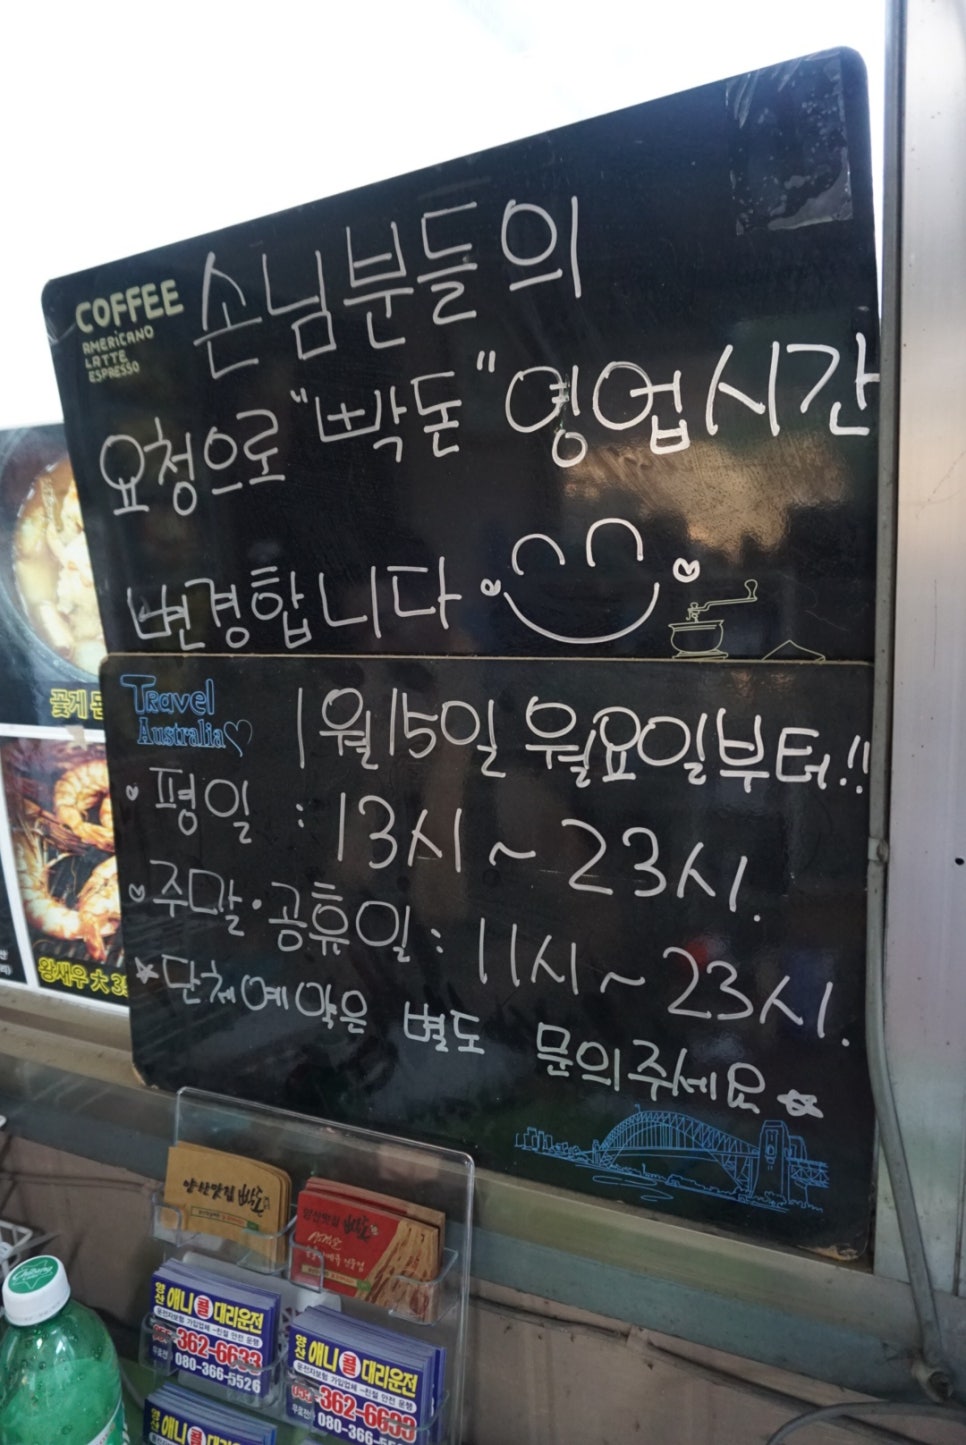 COFFEE
AMERICANO
LATTE
ESPRESSO
손님분들의
요청으로 "빡돈" 영업시간
변경합니다
Travel
Australia
1월15일 월요일부터!!
평일 : 13시 ~ 23시.
주말·공휴일 : 11시 ~ 23시.
단체예약은 별도 문의주세요
꽃게
왕새우 大 3
양산맛집 빡돈
양산맛집 빡돈
양산 애니콜 대리운전
362-6633
080-366-5526
양산 애니콜 대리운전
362-6633
애니콜 대리운전